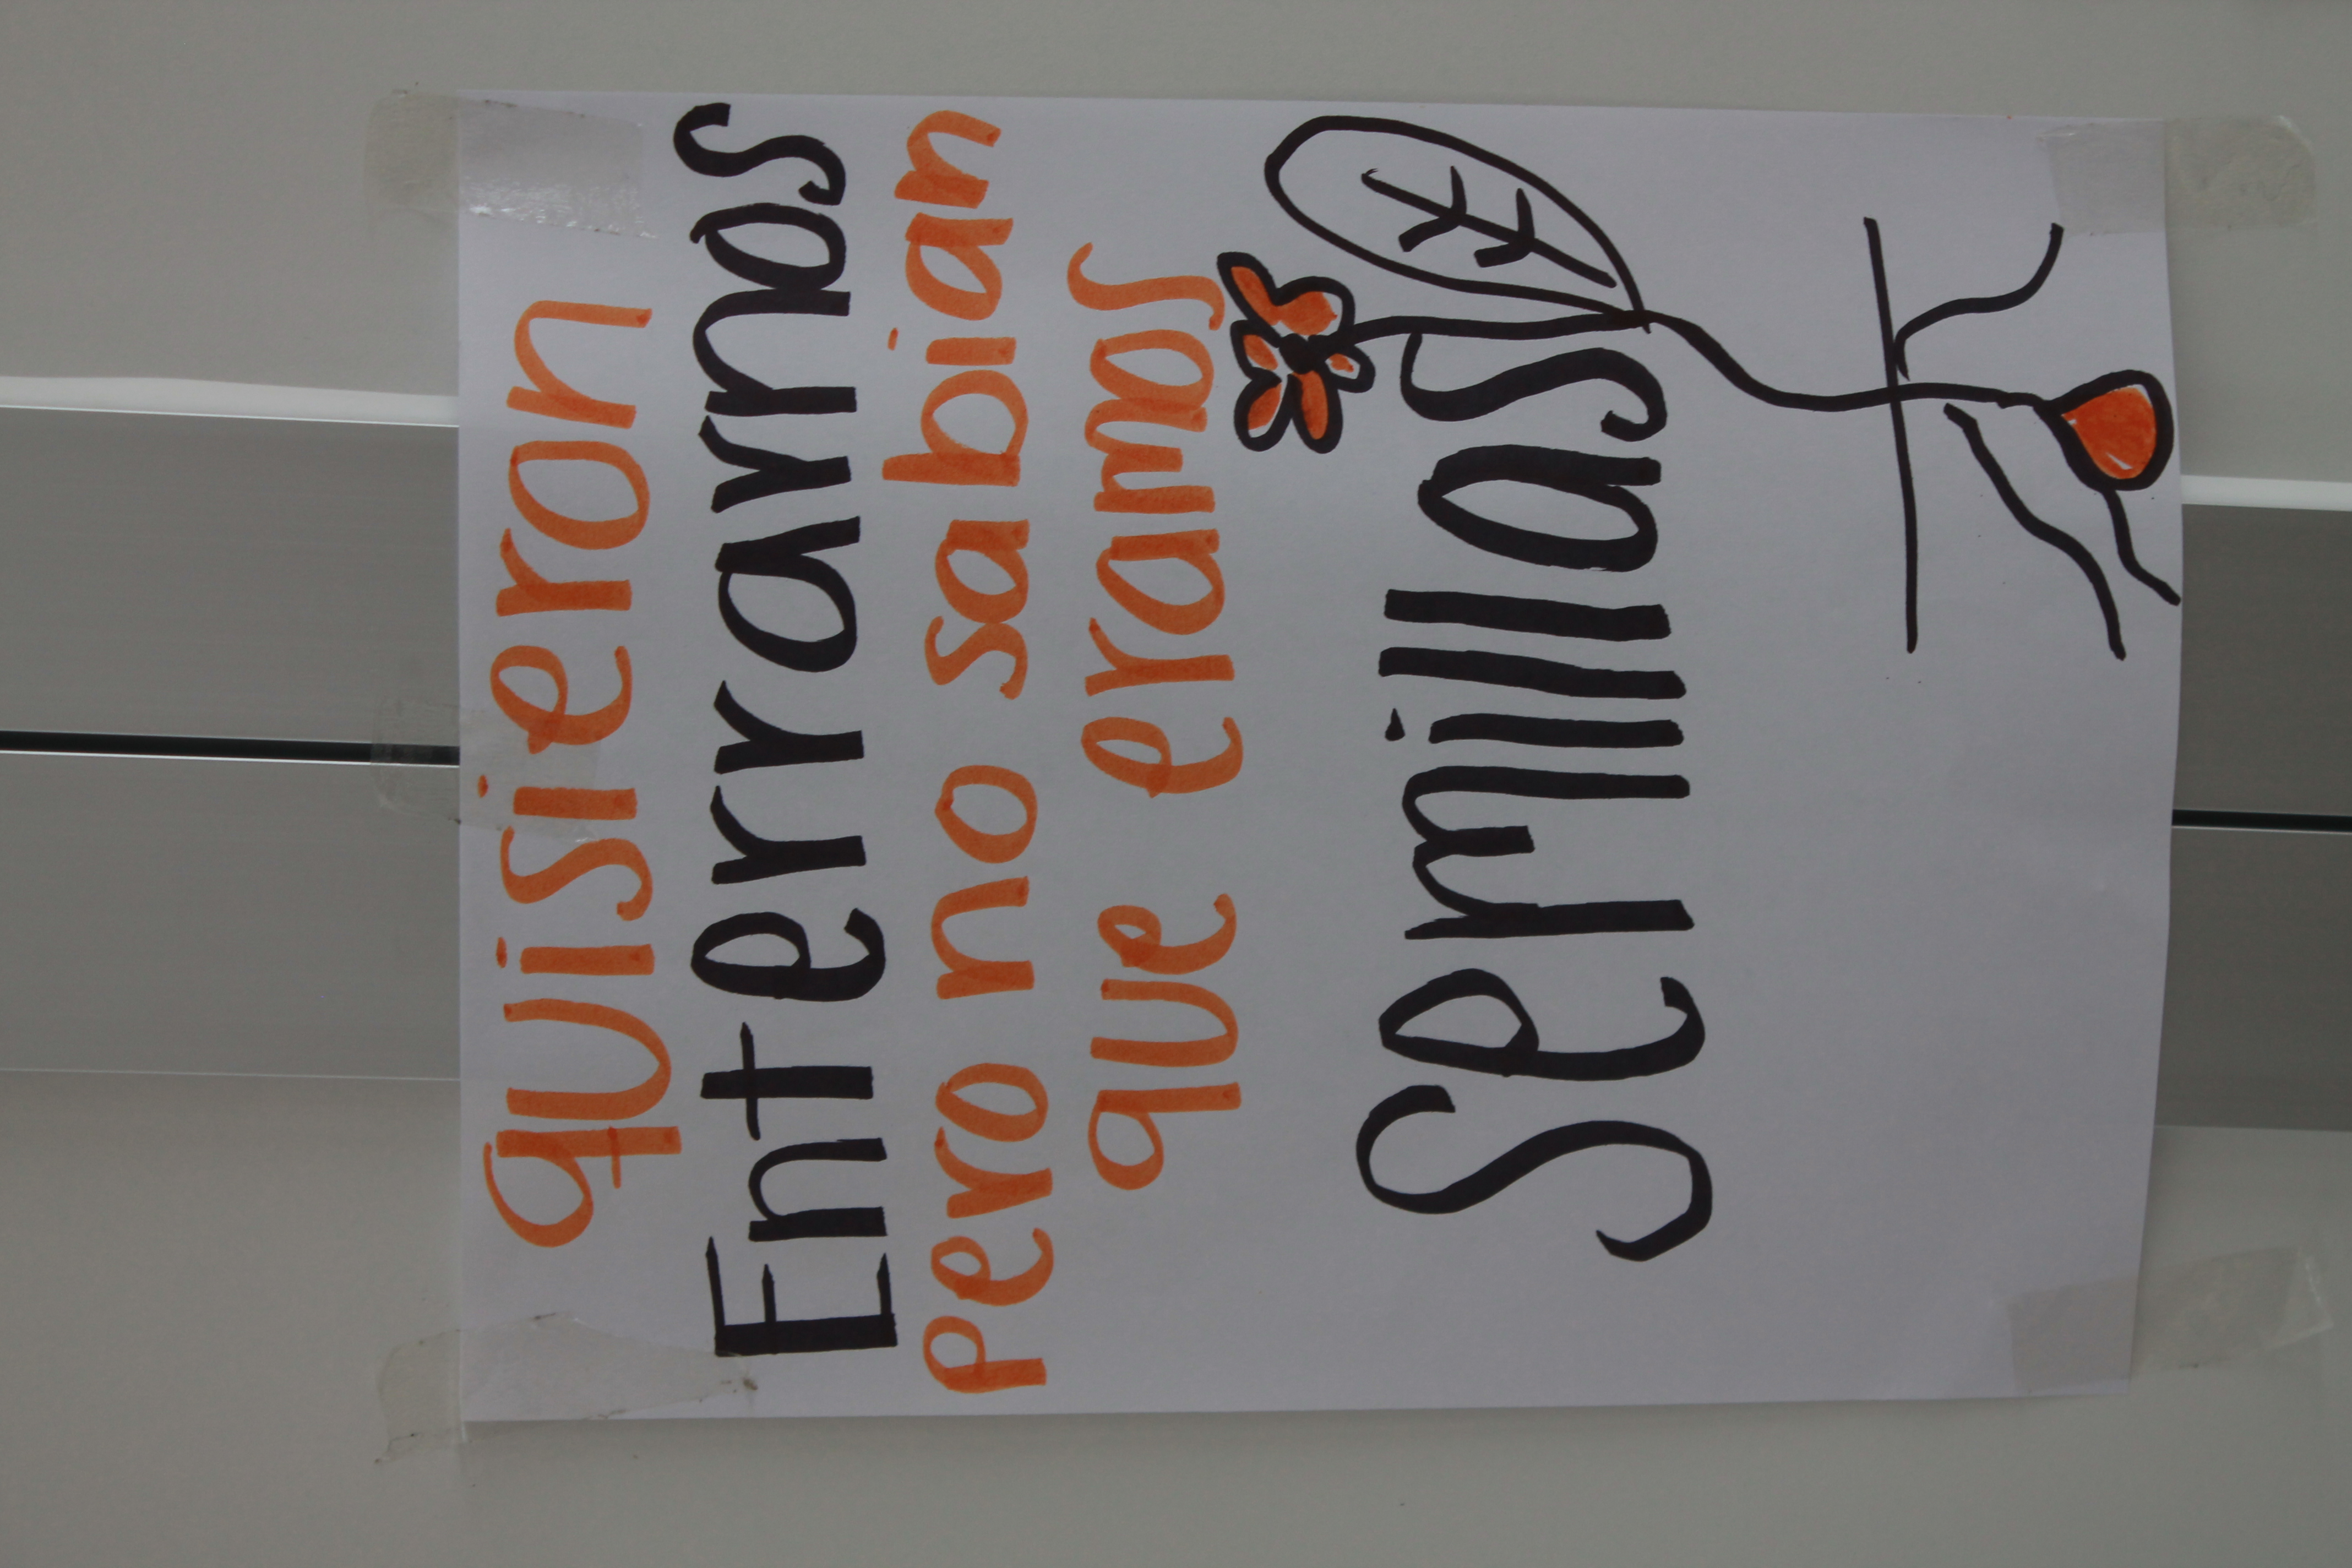 quisieron
Enterrarnos
pero no sabian
que eramos
Semillas